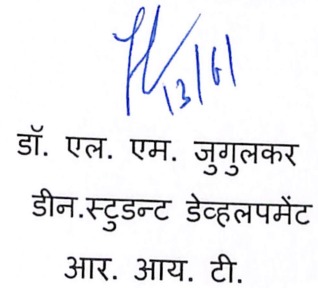 13/6/
डॉ. एल. एम. जुगुलकर
डीन.स्टुडन्ट डेव्हलपमेंट
आर. आय. टी.